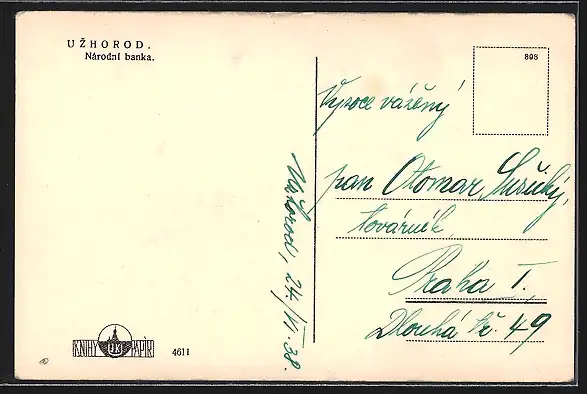 UŽHOROD.
Národní banka.
808
Vysoce vážený
pan Otomar Sušický,
továrník,
Praha I.,
Dlouhá tř. 49
Užhorod, 24./VI. 38.
KNIHY PAPÍR
4611